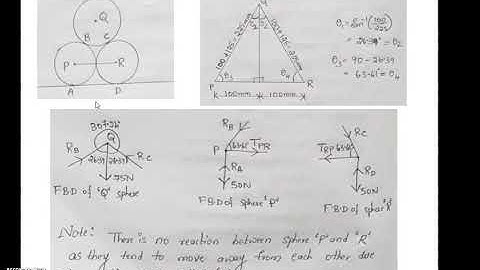 Q
B C
P R
A D
Q
100+125=225mm
100+125=225mm
θ1 θ2
θ3 θ4
P R
100mm 100mm
θ1 = Sin⁻¹(100/225)
= 26.39° = θ2
θ3 = 90-26.39
= 63.61 = θ4
Q
RB 26.39 26.39 RC
75N
F.B.D of "Q" sphere
RB
P 63.61 TPR
RA
50N
F.B.D of sphere 'P'
RC
TRP 63.61
RD
50N
F.B.D of sphere 'R'
Note: There is no reaction between sphere 'P' and 'R'
as they tend to move away from each other due